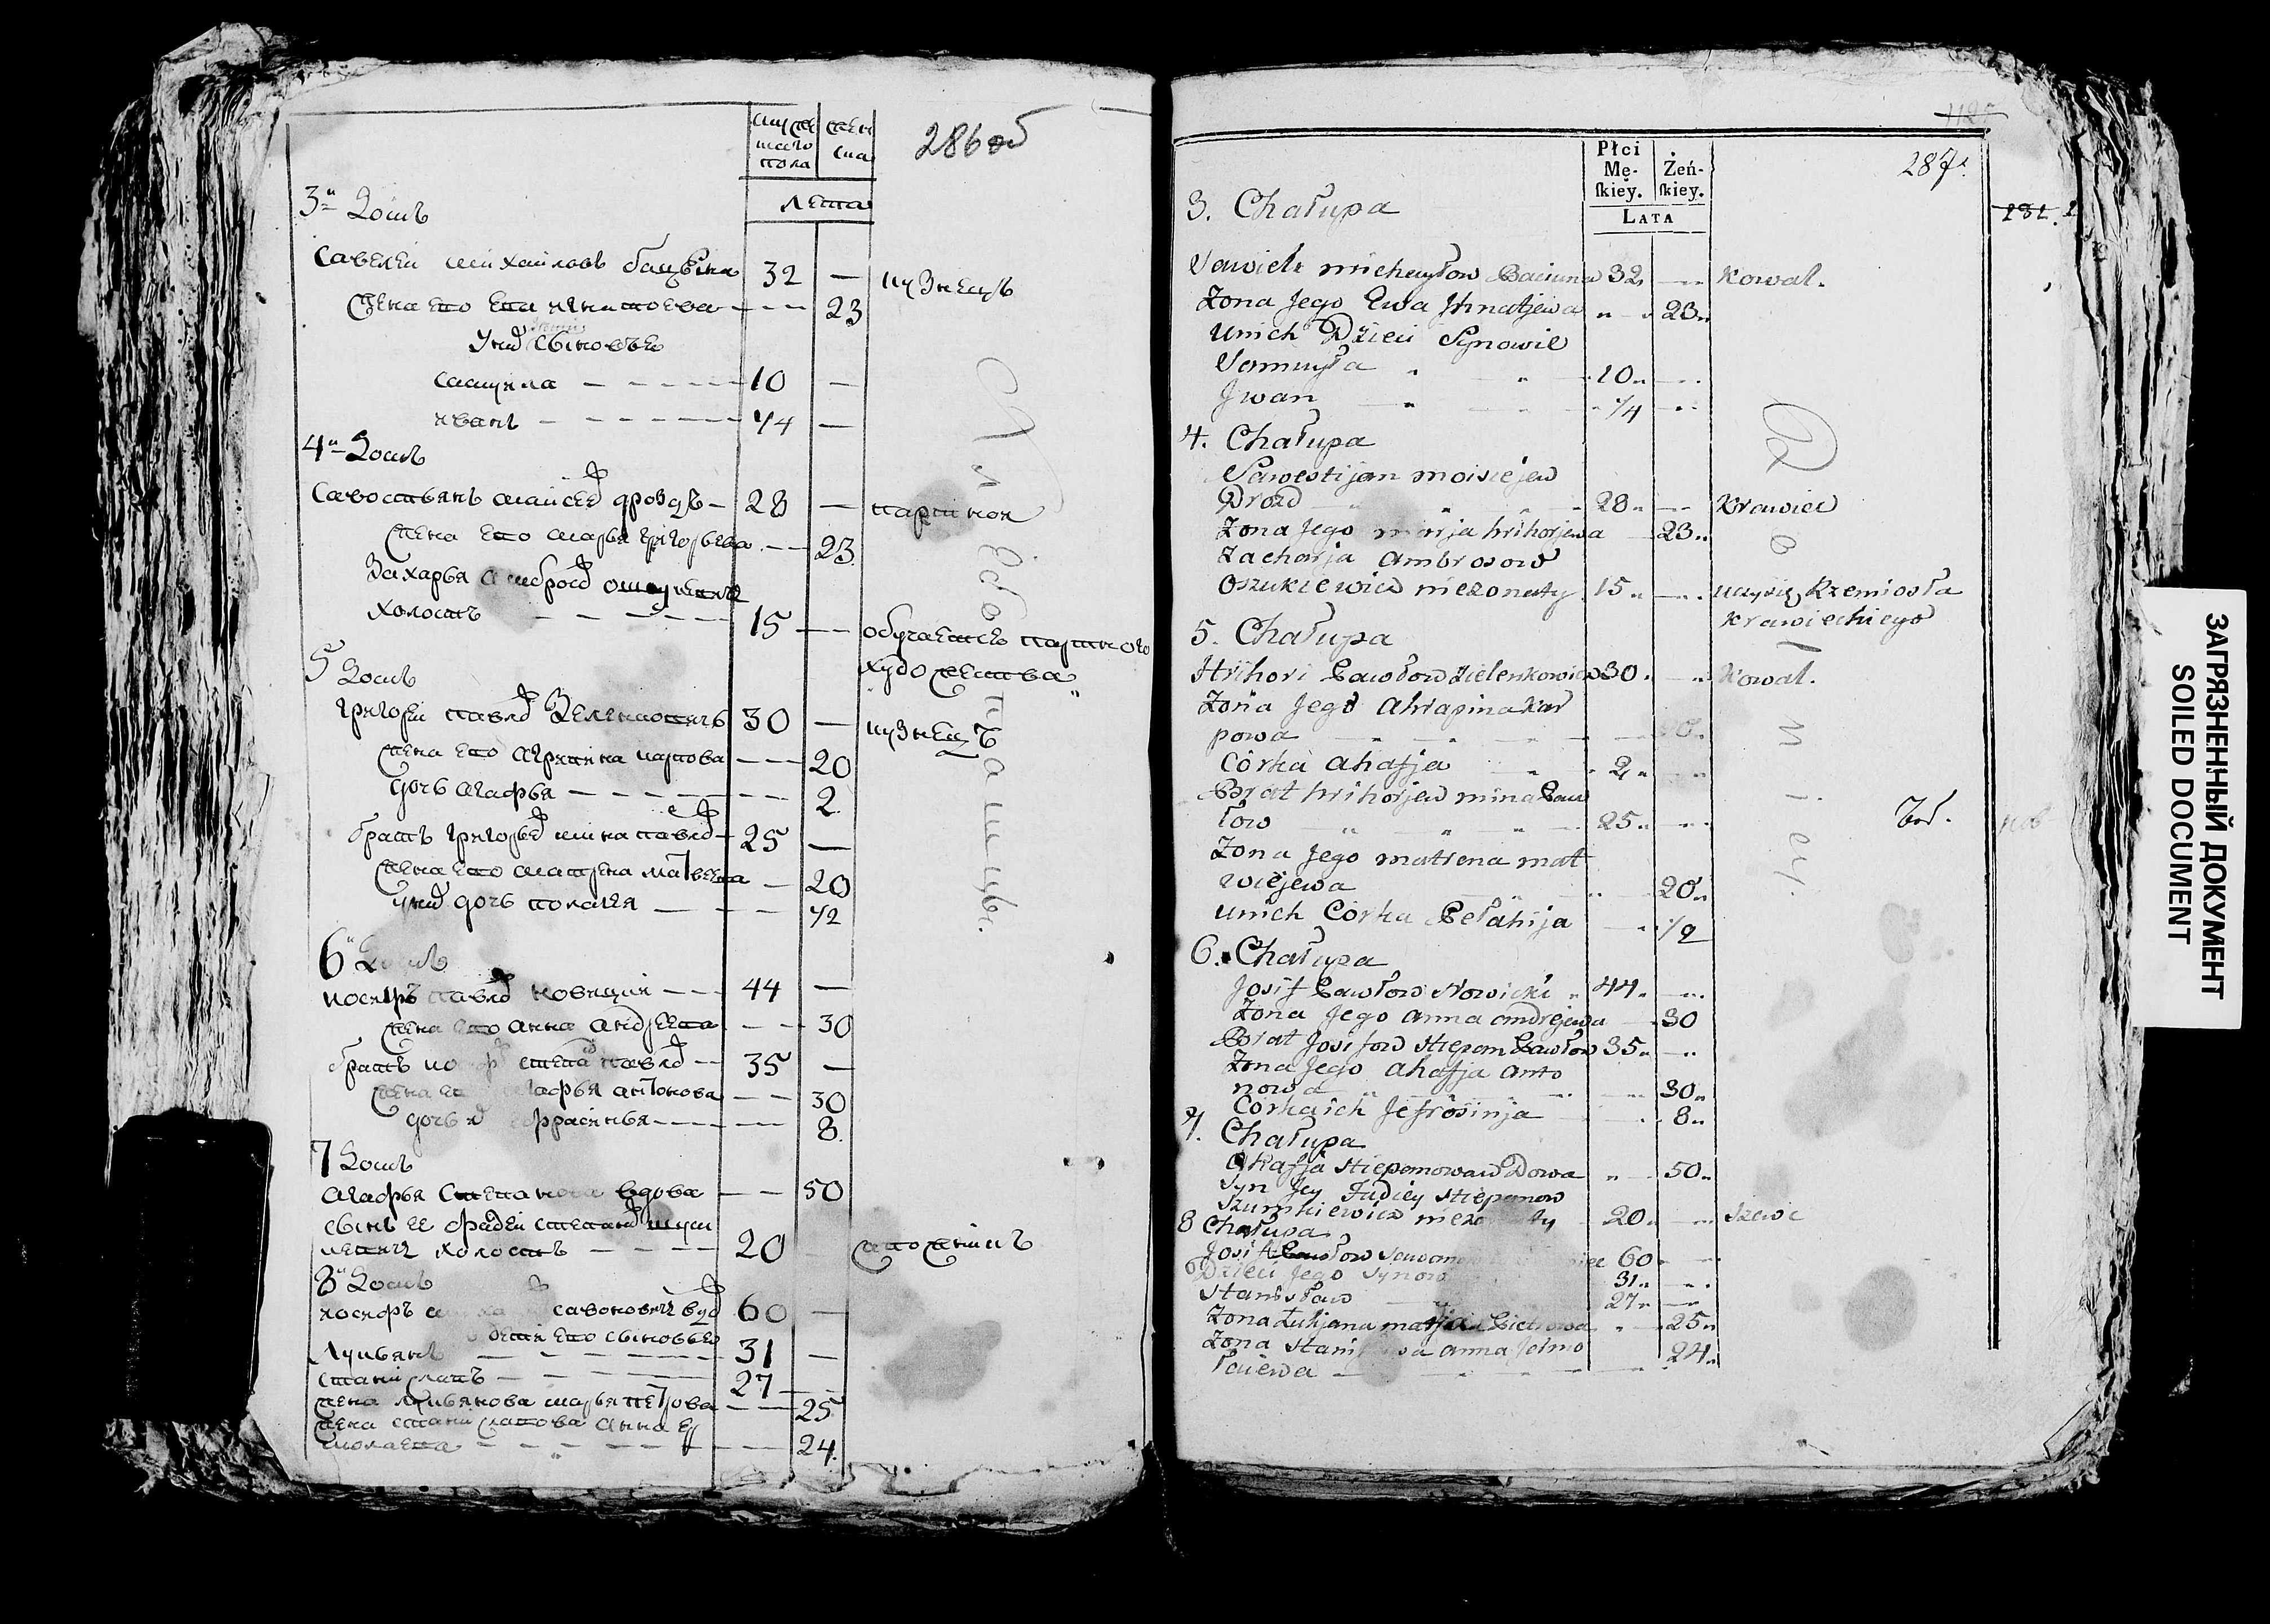 мужес
каго
пола
жен
ска
286 об
лета
3й Домъ
Савелей Михайловъ Бацвина 32 — кузнецъ
жена его Ева Игнатьева — — — 23
у них дети сыновье
Самуила — — — — — 10 —
Иванъ — — — — — — 1/4 —
4й Домъ
Савостьянъ Майсеев Дроздъ — 28 — партной
жена его Марья Григорьева — — 23
Захарья Амбросов Ошукевичъ
холостъ — — — — 15 — — обучается партного
художества
5 Домъ
Григорей Павлов Зеленкович 30 — кузнецъ
жена его Агрипина Карпова — — — 20
дочь Агафья — — — — — — — 2
братъ Григорьев Мина Павлов — 25 —
жена его Матрена Матвеева — 20
у них дочь Полагея — — — 1/2
6й Домъ
Иосифъ Павлов Новицки — — 44 —
жена его Анна Андреева — — 30
братъ Степан Павлов — 35 —
жена Агафья Антонова — — 30
дочь Ефрасинья — — — — 8.
7 Домъ
Агафья Степанова вдова — — 50
сынъ ее Фадей Степанов Шум
кевичъ холостъ — — — — 20 сапожникъ
8й Домъ
Иосифъ Савоневичъ вдов 60 —
дети его сыновье
Лукьянъ — — — — — — 31 —
Станиславъ — — — — — 27 — —
жена Лукьянова Марья Петрова — — 25
жена Станиславова Анна Ер
молаева — — — — — — — 24.
Слободка
119
287.
Płci
Mę-
ſkiéy.
Żeń-
ſkiey.
LATA
182. 2
3. Chałupa
Sawieli Michayłow Baciuna 32 — Kowal.
Zona Jego Ewa Hnatjewa „ — 23„
unich Dzieci Synowie
Samuyła „ „ 10„ —
Jwan „ 1/4 —
4. Chałupa
Sawestijan Moisiejew
Drozd „ „ „ 28„ — Krawiec
Zona Jego Marja Hrihorjewa 23„
Zacharja Ambrosow
Oszukiewicz niezonaty 15„ — uczysię Rzemiosła
Krawieckiego
5. Chałupa
Hrihori Pawłow Zielenkowicz 30„ — Kowal.
Zona Jego Ahrapina Kar
powa — — — 20„
Córka Ahafja „ 2„ —
Brat Hrihorjew Mina Paw
łow „ „ „ 25„ —
Zona Jego Matrena Mat
wiejewa — 20„
unich Córka Pełahija — 1/2
6. Chałupa
Josif Pawłow Nowicki „ 44„ —
Zona Jego Anna Andrejewa 30
Brat Josifow Stiepan Pawłow 35„ —
Zona Jego Ahafja Anto
nowa „ „ 30„
Corka ich Jefrosinja — 8„
7. Chałupa
Ahafja Stiepanowa wDowa „ 50„
Syn Jey Fadiey Stiepanow
Szumkiewicz niezonaty 20„ — szewc
8 Chałupa
Josif 60 —
Dzieci Jego Synow 31„ —
Stanisław — 27„ —
Zona Łukjana Marja Pietrowa „ 25„
Zona Stanisława Anna Jermo
łaiewa — — — 24„
ЗАГРЯЗНЕННЫЙ ДОКУМЕНТ
SOILED DOCUMENT